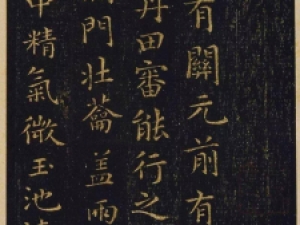 有關元前有
丹田審能行之
門壯蘥盖兩
中精氣微玉池